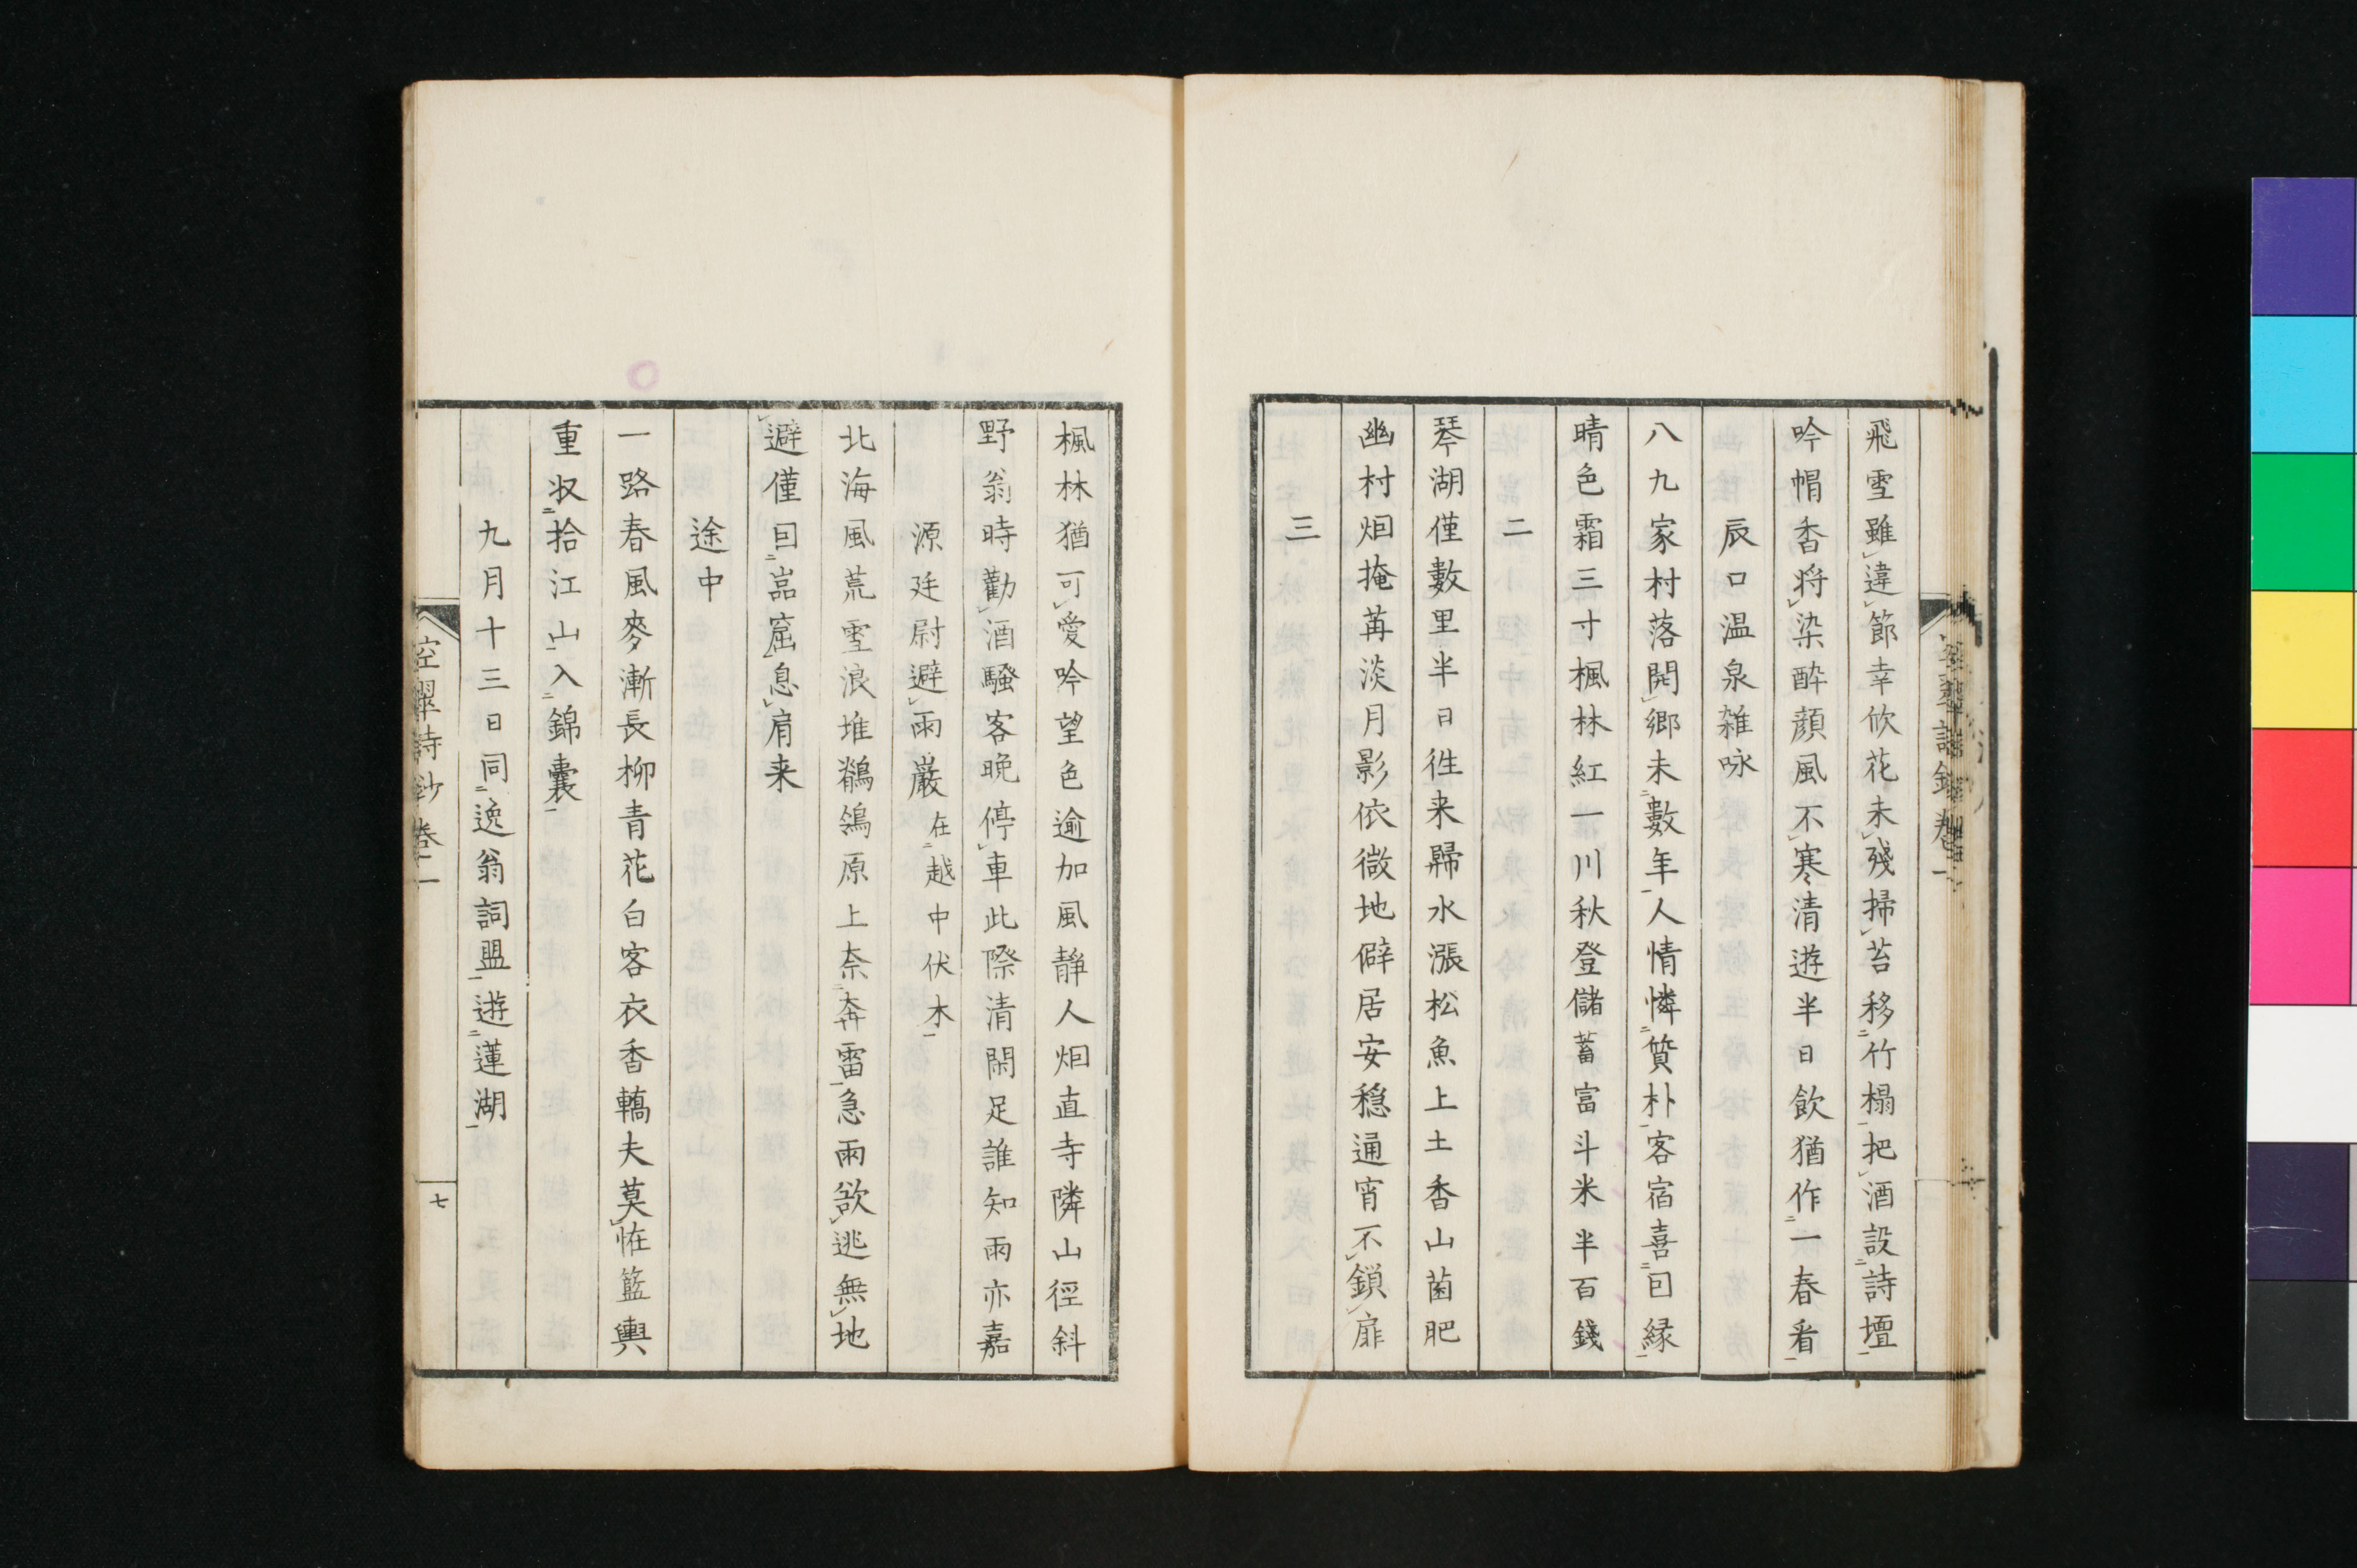 飛雪雖違節幸欣花未殘掃苔移竹榻把酒設詩壇
吟帽香将染酔顔風不寒清遊半日飲猶作一春看
辰口温泉雑咏
八九家村落開郷未數年人情憐質朴客宿喜回縁
晴色霜三寸楓林紅一川秋登儲蓄富斗米半百錢
二
琴湖僅數里半日徃来歸水漲松魚上土香山菌肥
幽村烟掩苒淡月影依微地僻居安穏通宵不鎖扉
三
楓林猶可愛吟望色逾加風静人烟直寺隣山徑斜
野翁時勸酒騷客晩停車此際清閑足誰知雨亦嘉
源廷尉避雨巌在越中伏木
北海風荒雪浪堆鶺鴒原上奈奔雷急雨欲逃無地
避僅回嵓窟息肩来
途中
一路春風麥漸長柳青花白客衣香轎夫莫恠籃輿
重収拾江山入錦囊
九月十三日同逸翁詞盟遊蓮湖
空翠詩鈔 巻二
七